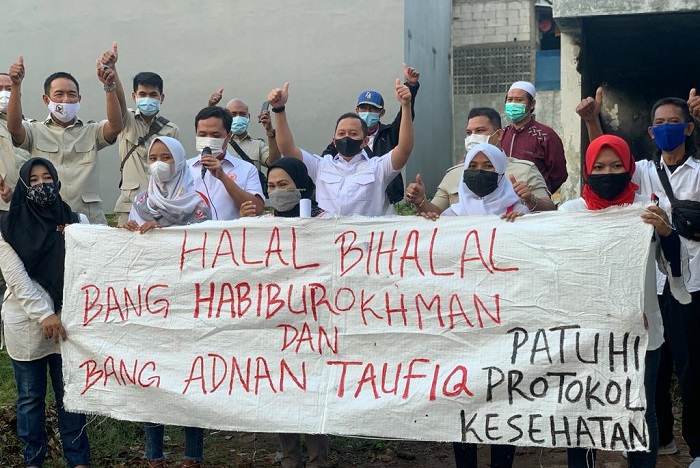 HALAL BIHALAL
BANG HABIBUROKHMAN
DAN
BANG ADNAN TAUFIQ
PATUHI
PROTOKOL
KESEHATAN